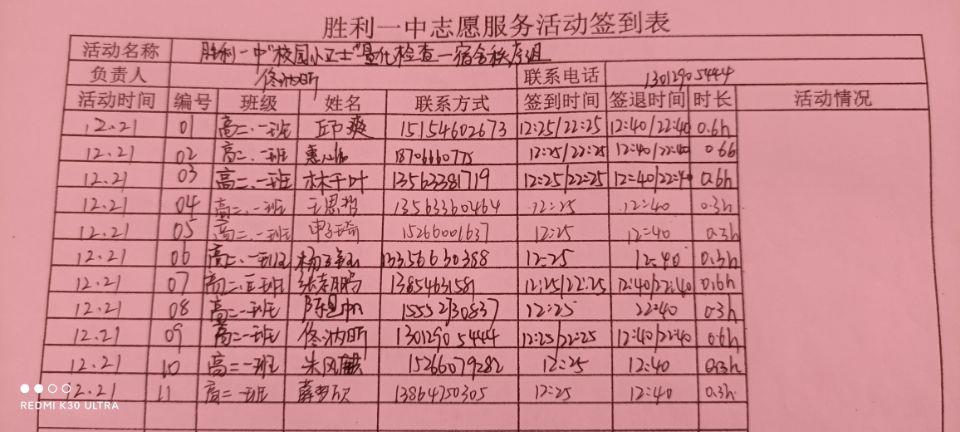 胜利一中志愿服务活动签到表
活动名称 胜利一中"校园小卫士"量化检查一宿舍秩序组
负责人 佟汭昕 联系电话 13012905444
活动时间 编号 班级 姓名 联系方式 签到时间 签退时间 时长 活动情况
12.21 01 高二.一班 邱爽 15154602673 12:25/22:25 12:40/22:40 0.6h
12.21 02 高二.一班 18706660775 12:25/22:25 12:40/22:40 0.6h
12.21 03 高二.一班 林千叶 13563381719 12:25/22:25 12:40/22:40 0.6h
12.21 04 高二.一班 王思哲 13563360464 12:25 12:40 0.3h
12.21 05 高二.一班 申子琦 15266001637 12:25 12:40 0.3h
12.21 06 高二.一班 13356630388 12:25 12:40 0.3h
12.21 07 高二.三班 13854631581 12:25/22:25 12:40/22:40 0.6h
12.21 08 高二一班 15552130837 12:25 22:40 0.3h
12.21 09 高二一班 佟汭昕 13012905444 12:25/22:25 12:40/22:40 0.6h
12.21 10 高二一班 朱风麒 15266079282 12:25 12:40 0.3h
12.21 11 高二一班 薛梦欣 13864750305 12:25 12:40 0.3h
REDMI K30 ULTRA